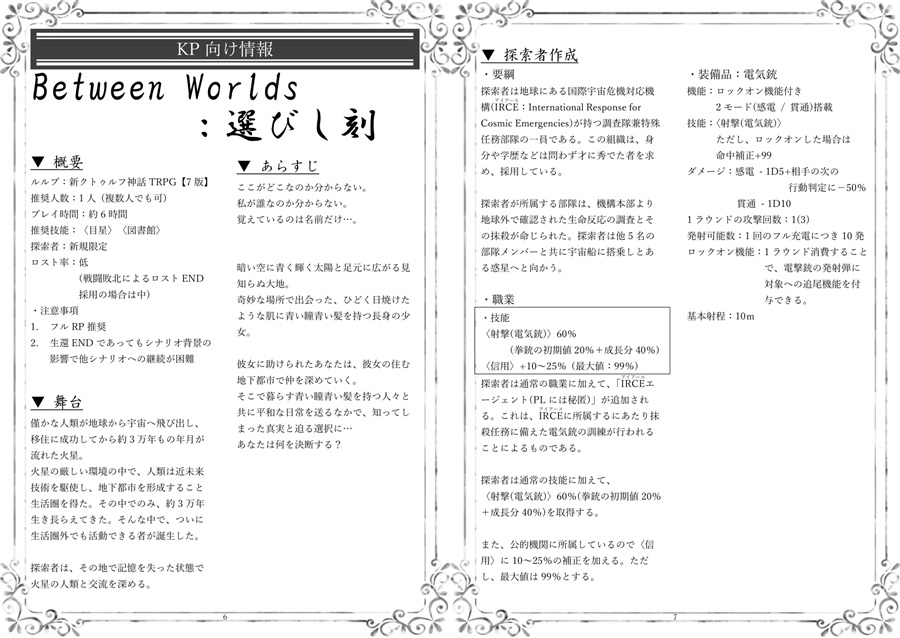 KP 向け情報
Between Worlds
：選びし刻
▼ 概要
ルルブ：新クトゥルフ神話 TRPG【7 版】
推奨人数：1 人（複数人でも可）
プレイ時間：約 6 時間
推奨技能：〈目星〉〈図書館〉
探索者：新規限定
ロスト率：低
(戦闘敗北によるロスト END
採用の場合は中)
・注意事項
1. フル RP 推奨
2. 生還 END であってもシナリオ背景の
影響で他シナリオへの継続が困難
▼ 舞台
僅かな人類が地球から宇宙へ飛び出し、
移住に成功してから約 3 万年もの年月が
流れた火星。
火星の厳しい環境の中で、人類は近未来
技術を駆使し、地下都市を形成すること
生活圏を得た。その中でのみ、約 3 万年
生き長らえてきた。そんな中で、ついに
生活圏外でも活動できる者が誕生した。
探索者は、その地で記憶を失った状態で
火星の人類と交流を深める。
▼ あらすじ
ここがどこなのか分からない。
私が誰なのか分からない。
覚えているのは名前だけ…。
暗い空に青く輝く太陽と足元に広がる見
知らぬ大地。
奇妙な場所で出会った、ひどく日焼けた
ような肌に青い瞳青い髪を持つ長身の少
女。
彼女に助けられたあなたは、彼女の住む
地下都市で仲を深めていく。
そこで暮らす青い瞳青い髪を持つ人々と
共に平和な日常を送るなかで、知ってし
まった真実と迫る選択に…
あなたは何を決断する？
6
▼ 探索者作成
・要綱
探索者は地球にある国際宇宙危機対応機
構(IRCE：International Response for
アイアース
Cosmic Emergencies)が持つ調査隊兼特殊
任務部隊の一員である。この組織は、身
分や学歴などは問わず才に秀でた者を求
め、採用している。
探索者が所属する部隊は、機構本部より
地球外で確認された生命反応の調査とそ
の抹殺が命じられた。探索者は他 5 名の
部隊メンバーと共に宇宙船に搭乗しとあ
る惑星へと向かう。
・職業
・技能
〈射撃(電気銃)〉60%
(拳銃の初期値 20%＋成長分 40%)
〈信用〉+10～25%（最大値：99%）
アイアース
探索者は通常の職業に加えて、「IRCEエ
ージェント(PL には秘匿)」が追加され
アイアース
る。これは、IRCEに所属するにあたり抹
殺任務に備えた電気銃の訓練が行われる
ことによるものである。
探索者は通常の技能に加えて、
〈射撃(電気銃)〉60%(拳銃の初期値 20%
＋成長分 40%)を取得する。
また、公的機関に所属しているので〈信
用〉に 10～25%の補正を加える。ただ
し、最大値は 99%とする。
・装備品：電気銃
機能：ロックオン機能付き
2 モード(感電 / 貫通)搭載
技能：〈射撃(電気銃)〉
ただし、ロックオンした場合は
命中補正+99
ダメージ：感電 - 1D5+相手の次の
行動判定に－50%
貫通 - 1D10
1 ラウンドの攻撃回数：1(3)
発射可能数：1 回のフル充電につき 10 発
ロックオン機能：1 ラウンド消費すること
で、電撃銃の発射弾に
対象への追尾機能を付
与できる。
基本射程：10m
7